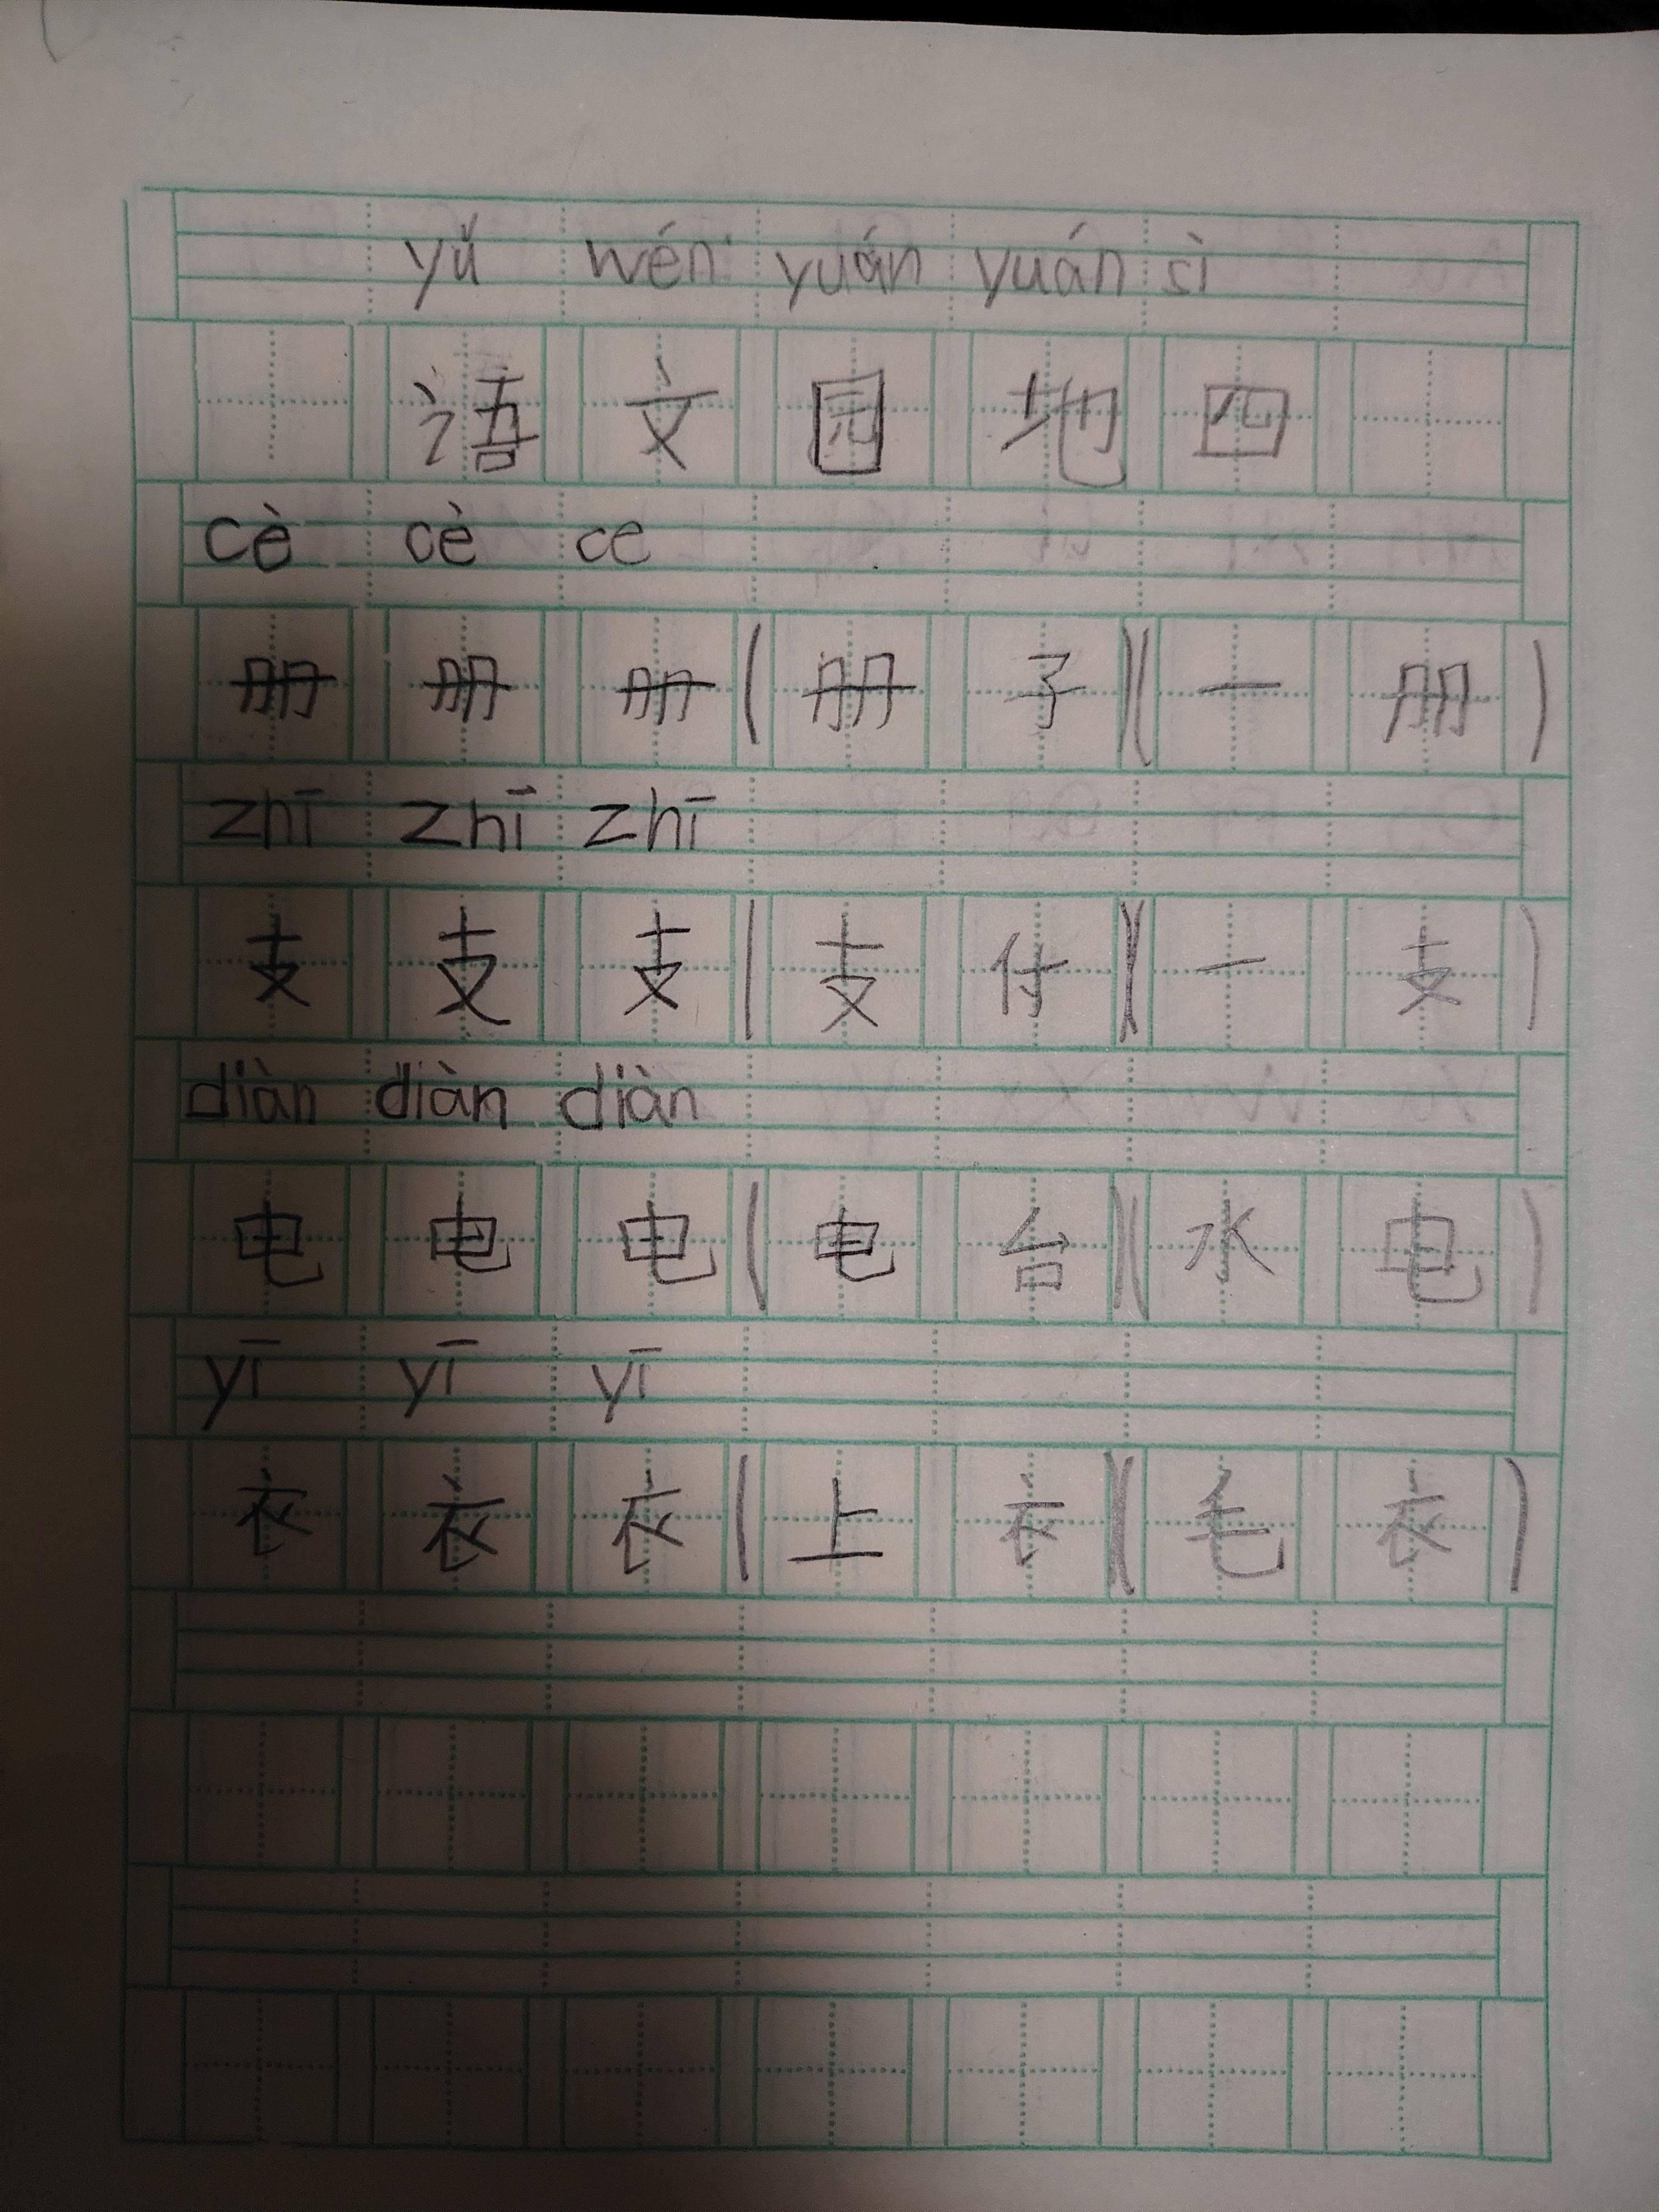 yǔ wén yuán yuán sì
语文园地四
cè cè ce
册册册(册子)(一册)
zhī zhī zhī
支支支(支付)(一支)
diàn diàn diàn
电电电(电台)(水电)
yī yī yī
衣衣衣(上衣)(毛衣)